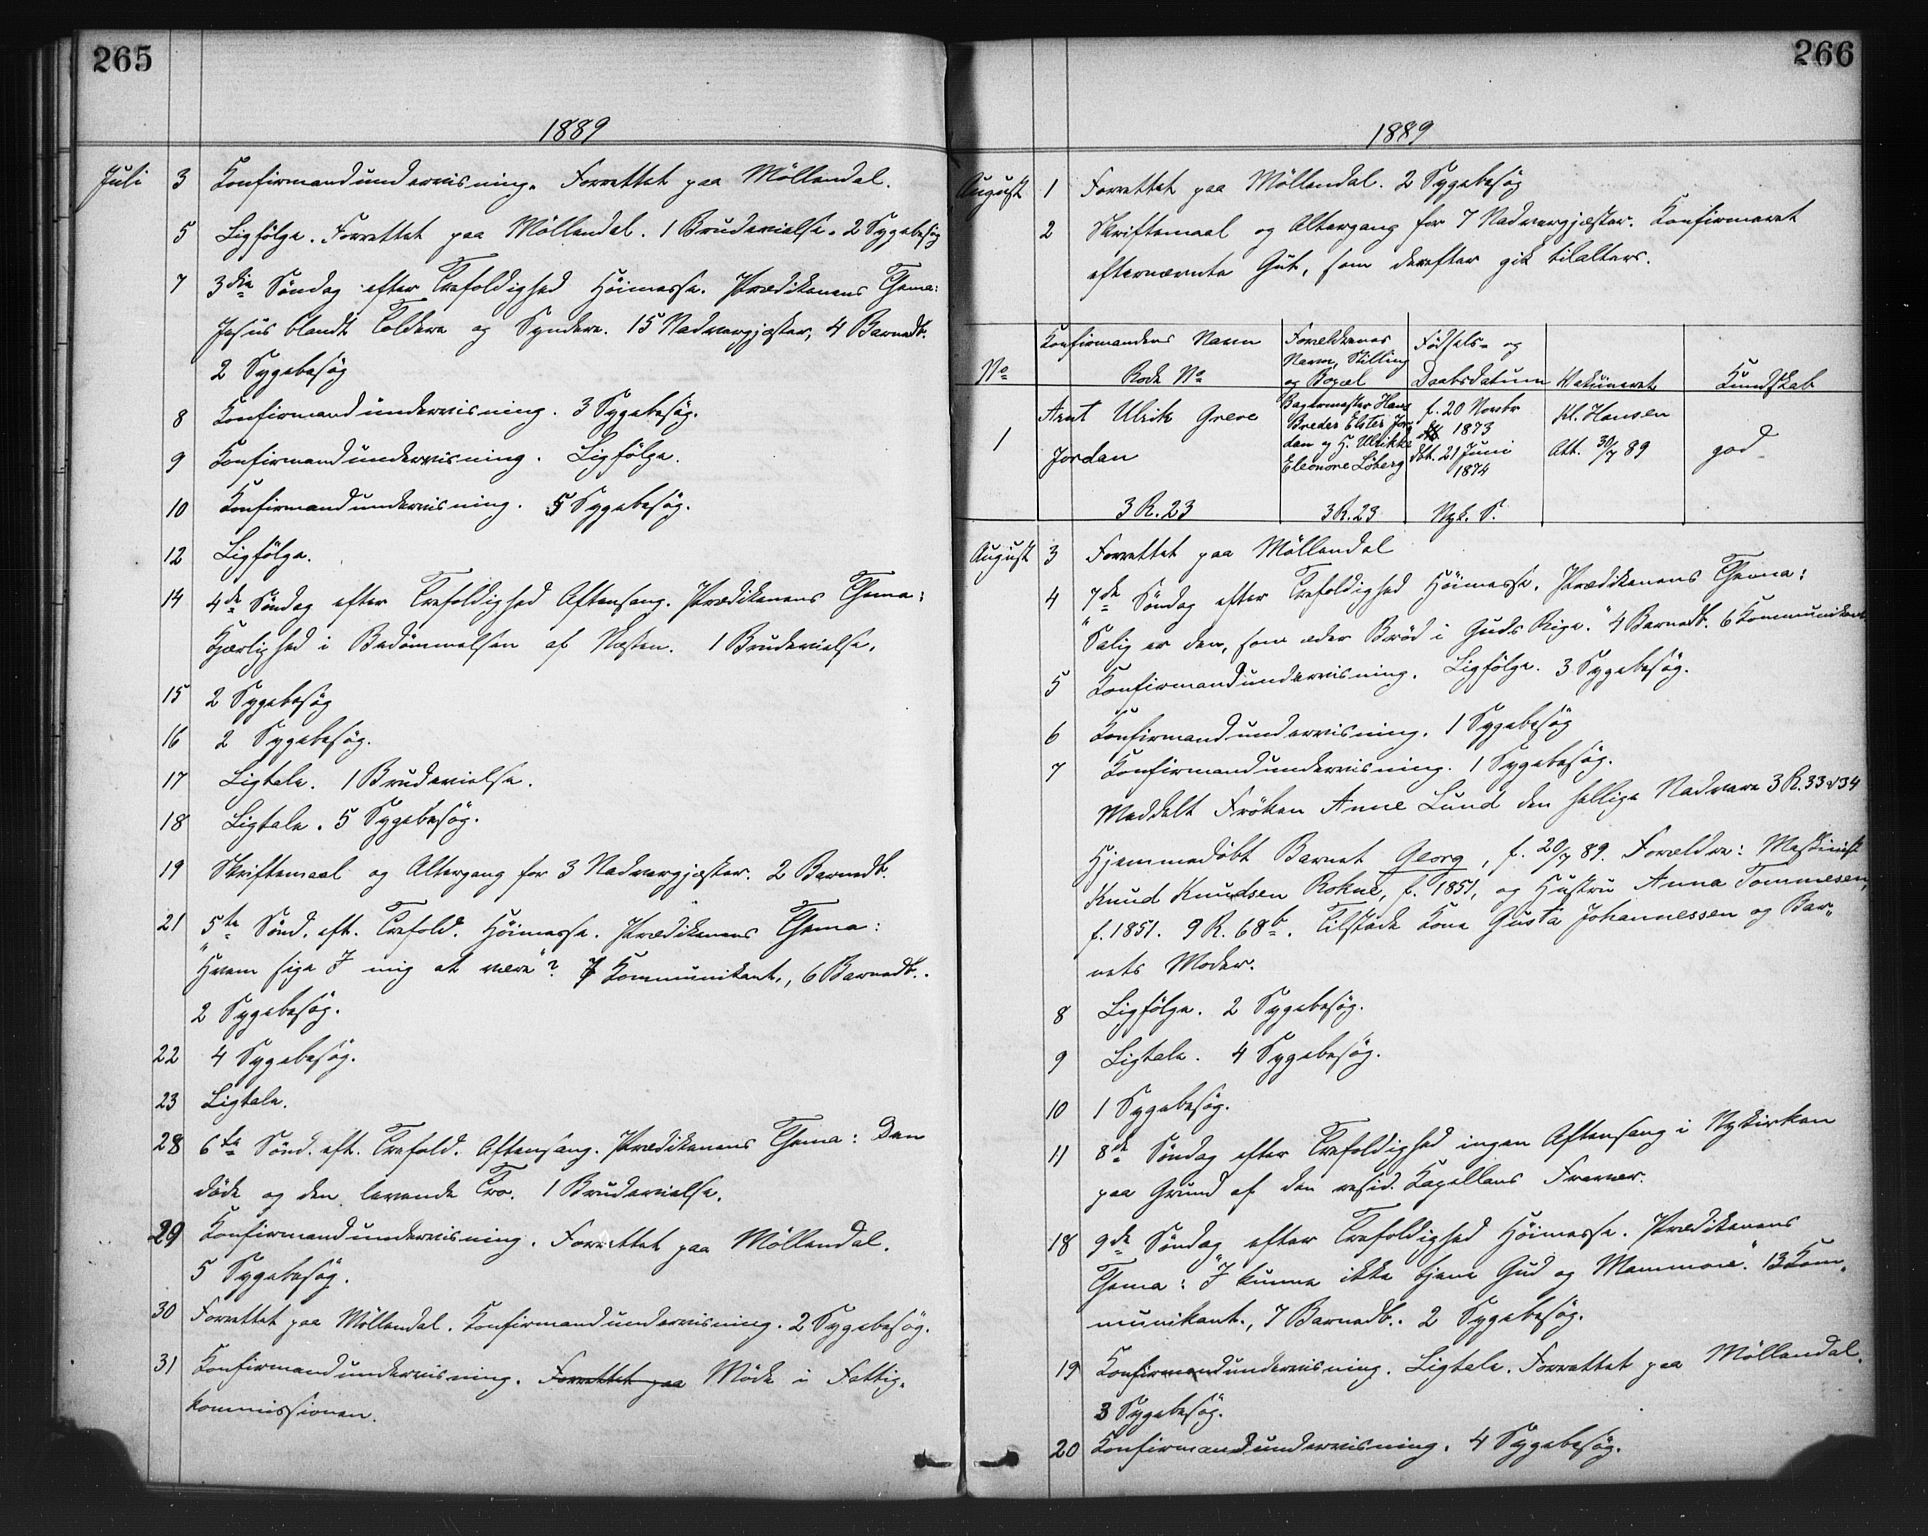 265
1889
Juli 3 Konfirmandundervisning. Forrettet paa Möllendal.
5 Ligfölge. Forrettet paa Möllendal. 1 Brudevielse. 2 Sygebesög
7 3die Söndag efter Trefoldighed Höimesse. Prædikenens Thema:
Jesus blandt Toldere og Syndere. 15 Nadvergjæster, 4 Barnedb.
2 Sygebesög
8 Konfirmandundervisning. 3 Sygebesög.
9 Konfirmandundervisning. Ligfölge.
10 Konfirmandundervisning. 5 Sygebesög.
12 Ligfölge.
14 4de Söndag efter Trefoldighed Aftensang. Prædikenens Thema:
Kjærlighed i Bedömmelsen af Næsten. 1 Brudevielse.
15 2 Sygebesög
16 2 Sygebesög.
17 Ligtale. 1 Brudevielse.
18 Ligtale. 5 Sygebesög.
19 Skriftemaal og Altergang for 3 Nadvergjæster. 2 Barnedb.
21 5te Sönd. eft. Trefold. Höimesse. Prædikenens Thema:
"Hvem sige I mig at være"? 7 Kommunikant., 6 Barnedb..
2 Sygebesög.
22 4 Sygebesög.
23 Ligtale.
28 6te Sönd. eft. Trefold. Aftensang. Prædikenens Thema: Den
döde og den levende Tro. 1 Brudevielse.
29 Konfirmandundervisning. Forrettet paa Möllendal.
5 Sygebesög.
30 Forrettet paa Möllendal. Konfirmandundervisning. 2 Sygebesög.
31 Konfirmandundervisning. Forrettet paa Möde i Fattig-
kommissionen.
266
1889
August 1 Forrettet paa Möllendal. 2 Sygebesög
2 Skriftemaal og Altergang for 7 Nadvergjæster. Konfirmeret
efternævnte Gut, som derefter gik tilalters.
No Konfirmandens Navn Rode No
Forældrenes Navn, Stilling og Bopæl
Födsels- og Daabsdatum
Vakcineret
Kundskab
1 Arnt Ulrik Greve
Jordan
3 R. 23
Bagermester Hans
Breder Elster Jor-
dan og H. Ulrikke
Eleonore Löberg
3 R. 23
f. 20 Novbr
1873
döbt. 21 Juni
1874
Nyk. S.
Kl. Hansen
Att. 30/7 89
god
August 3 Forrettet paa Möllendal
4 7de Söndag efter Trefoldighed Höimesse. Prædikenens Thema:
"Salig er den, som æder Bröd i Guds Rige." 4 Barnedb. 6 Kommunikant.
5 Konfirmandundervisning. Ligfölge. 3 Sygebesög.
6 Konfirmandundervisning. 1 Sygebesög
7 Konfirmandundervisning. 1 Sygebesög.
Meddelt Fröken Anne Lund den hellige Nadvere 3 R. 33 & 34
Hjemmedöbt Barnet Georg, f. 20/7 89. Forældre: Maskinist
Knud Knudsen Rokne, f. 1851, og Hustru Anna Tommesen,
f. 1851. 9 R. 68b. Tilstede Kone Gusta Johannessen og Bar-
nets Moder.
8 Ligfölge. 2 Sygebesög.
9 Ligtale. 4 Sygebesög.
10 1 Sygebesög.
11 8de Söndag efter Trefoldighed ingen Aftensang i Nykirken
paa Grund af den resid. Kapellans Fravær.
18 9de Söndag efter Trefoldighed Höimesse. Prædikenens
Thema: "I kunne ikke tjene Gud og Mammon". 13 Kom-
munikant., 7 Barnedb.. 2 Sygebesög.
19 Konfirmandundervisning. Ligtale. Forrettet paa Möllendal.
3 Sygebesög.
20 Konfirmandundervisning. 4 Sygebesög.